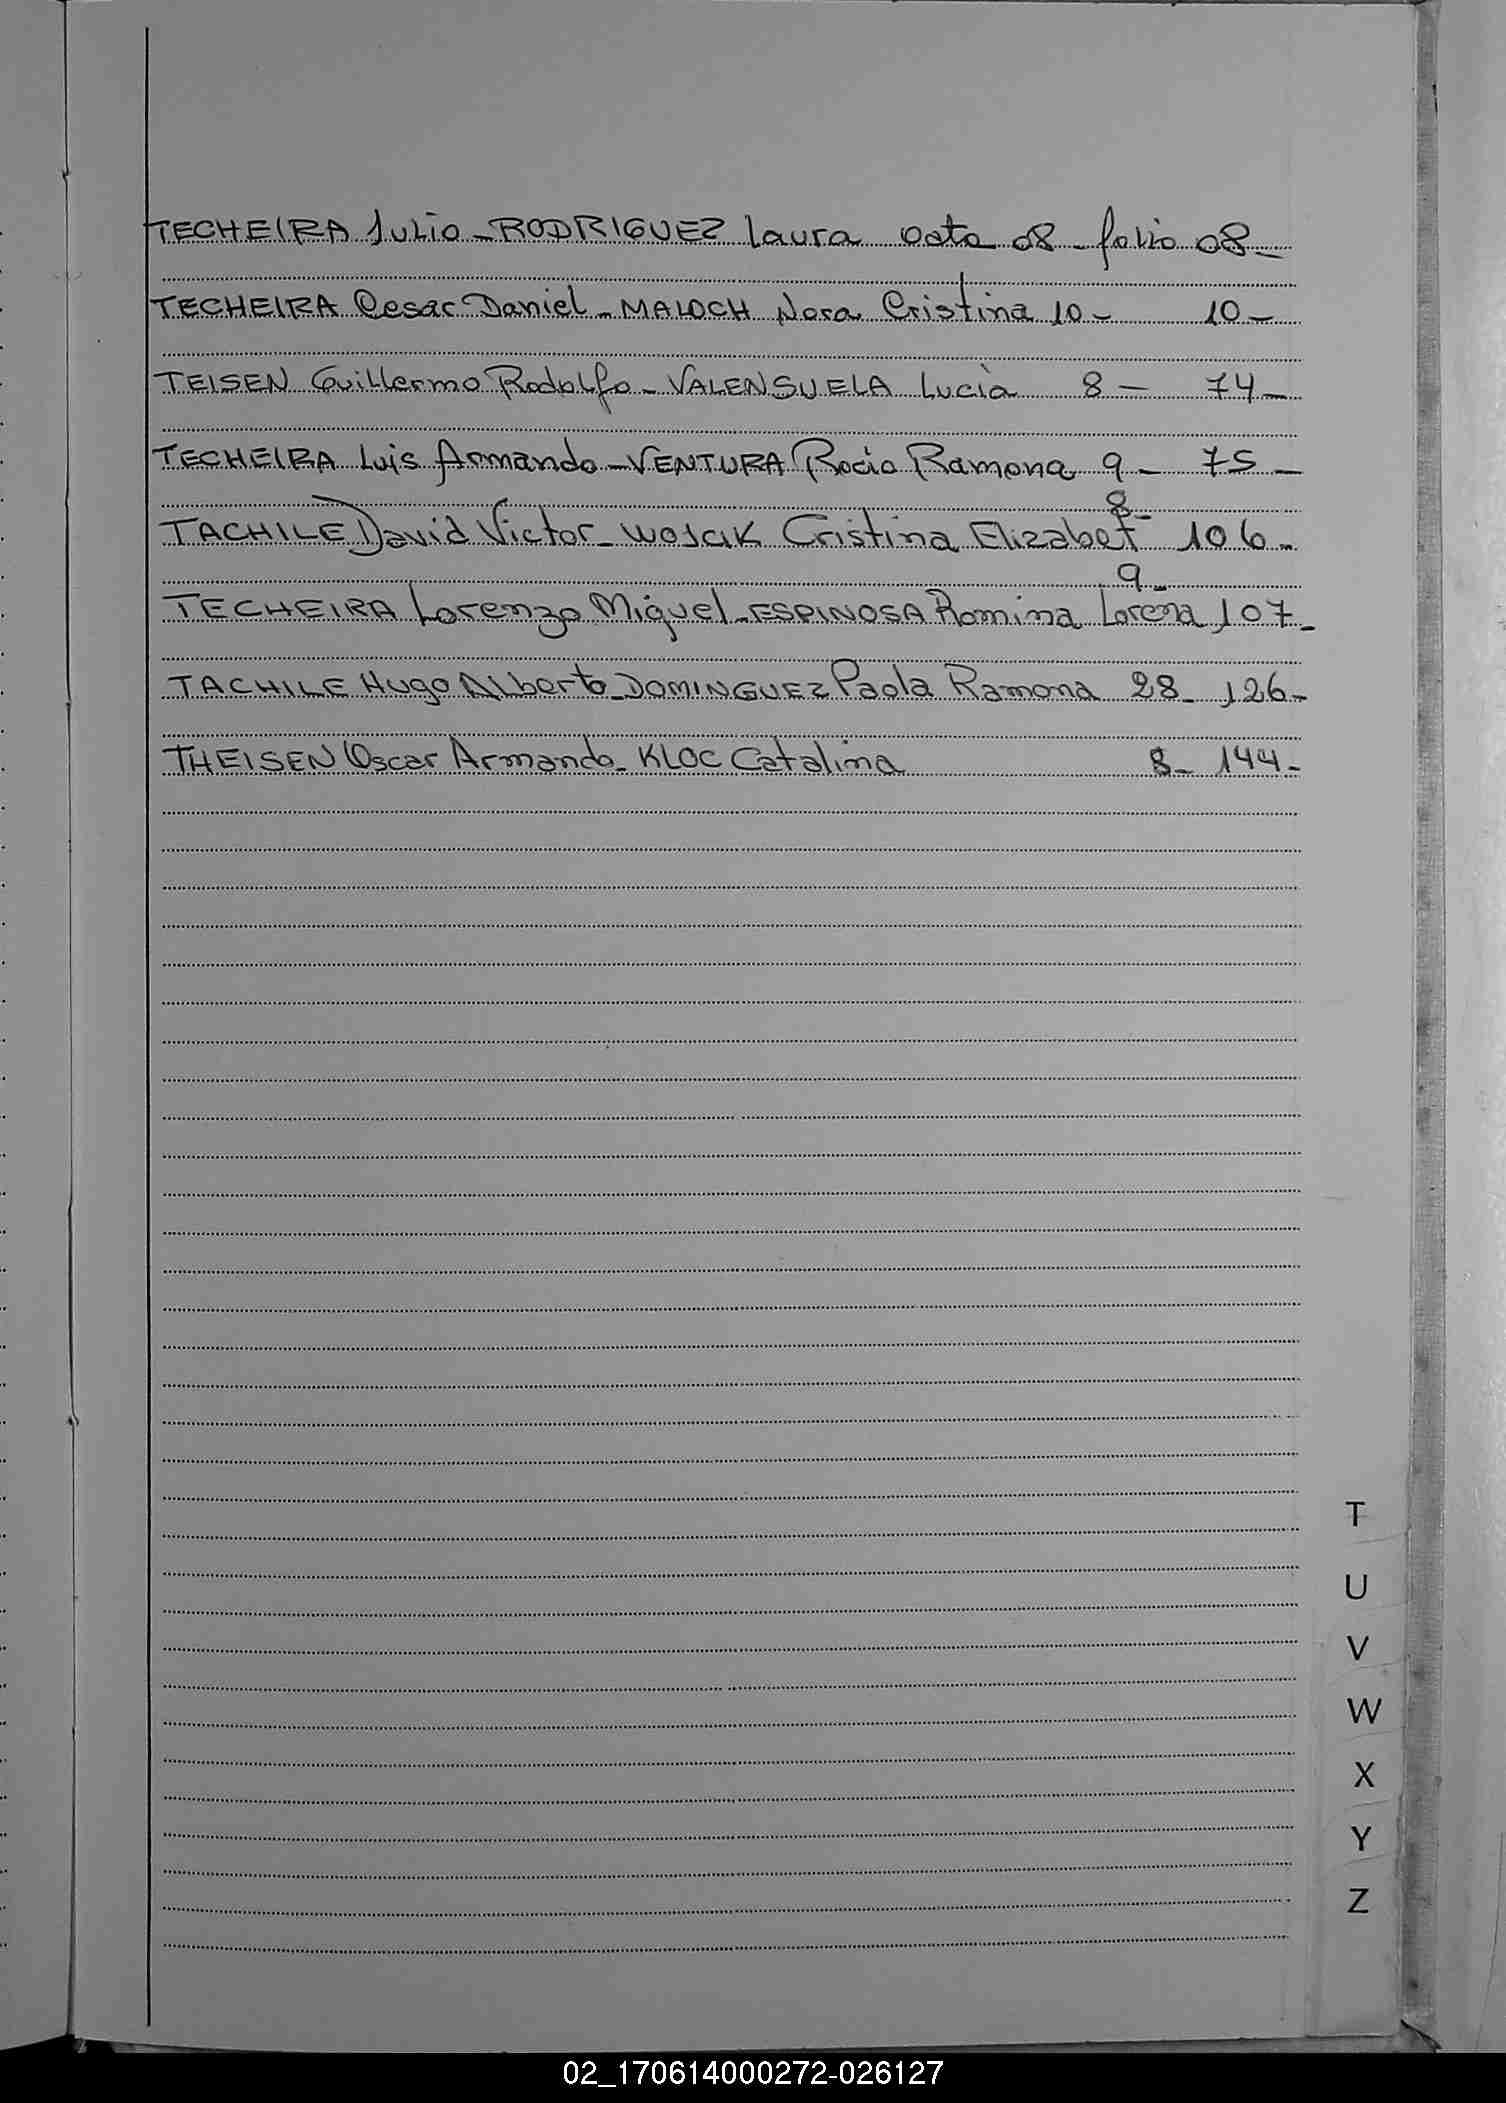 TECHEIRA Julio - RODRIGUEZ Laura Acta 08 - folio 08 -
TECHEIRA Cesar Daniel - MALOCH Nora Cristina 10 - 10 -
TEISEN Guillermo Rodolfo - VALENSUELA Lucìa 8 - 74 -
TECHEIRA Luis Armando - VENTURA Rocio Ramona 9 - 75 -
8 -
TACHILE David Victor - WOJCIK Cristina Elizabet 106 -
9 -
TECHEIRA Lorenzo Miguel - ESPINOSA Romina Lorena 107 -
TACHILE Hugo Alberto - DOMINGUEZ Paola Ramona 28 - 126 -
THEISEN Oscar Armando - KLOC Catalina 8 - 144 -
T
U
V
W
X
Y
Z
02_170614000272-026127